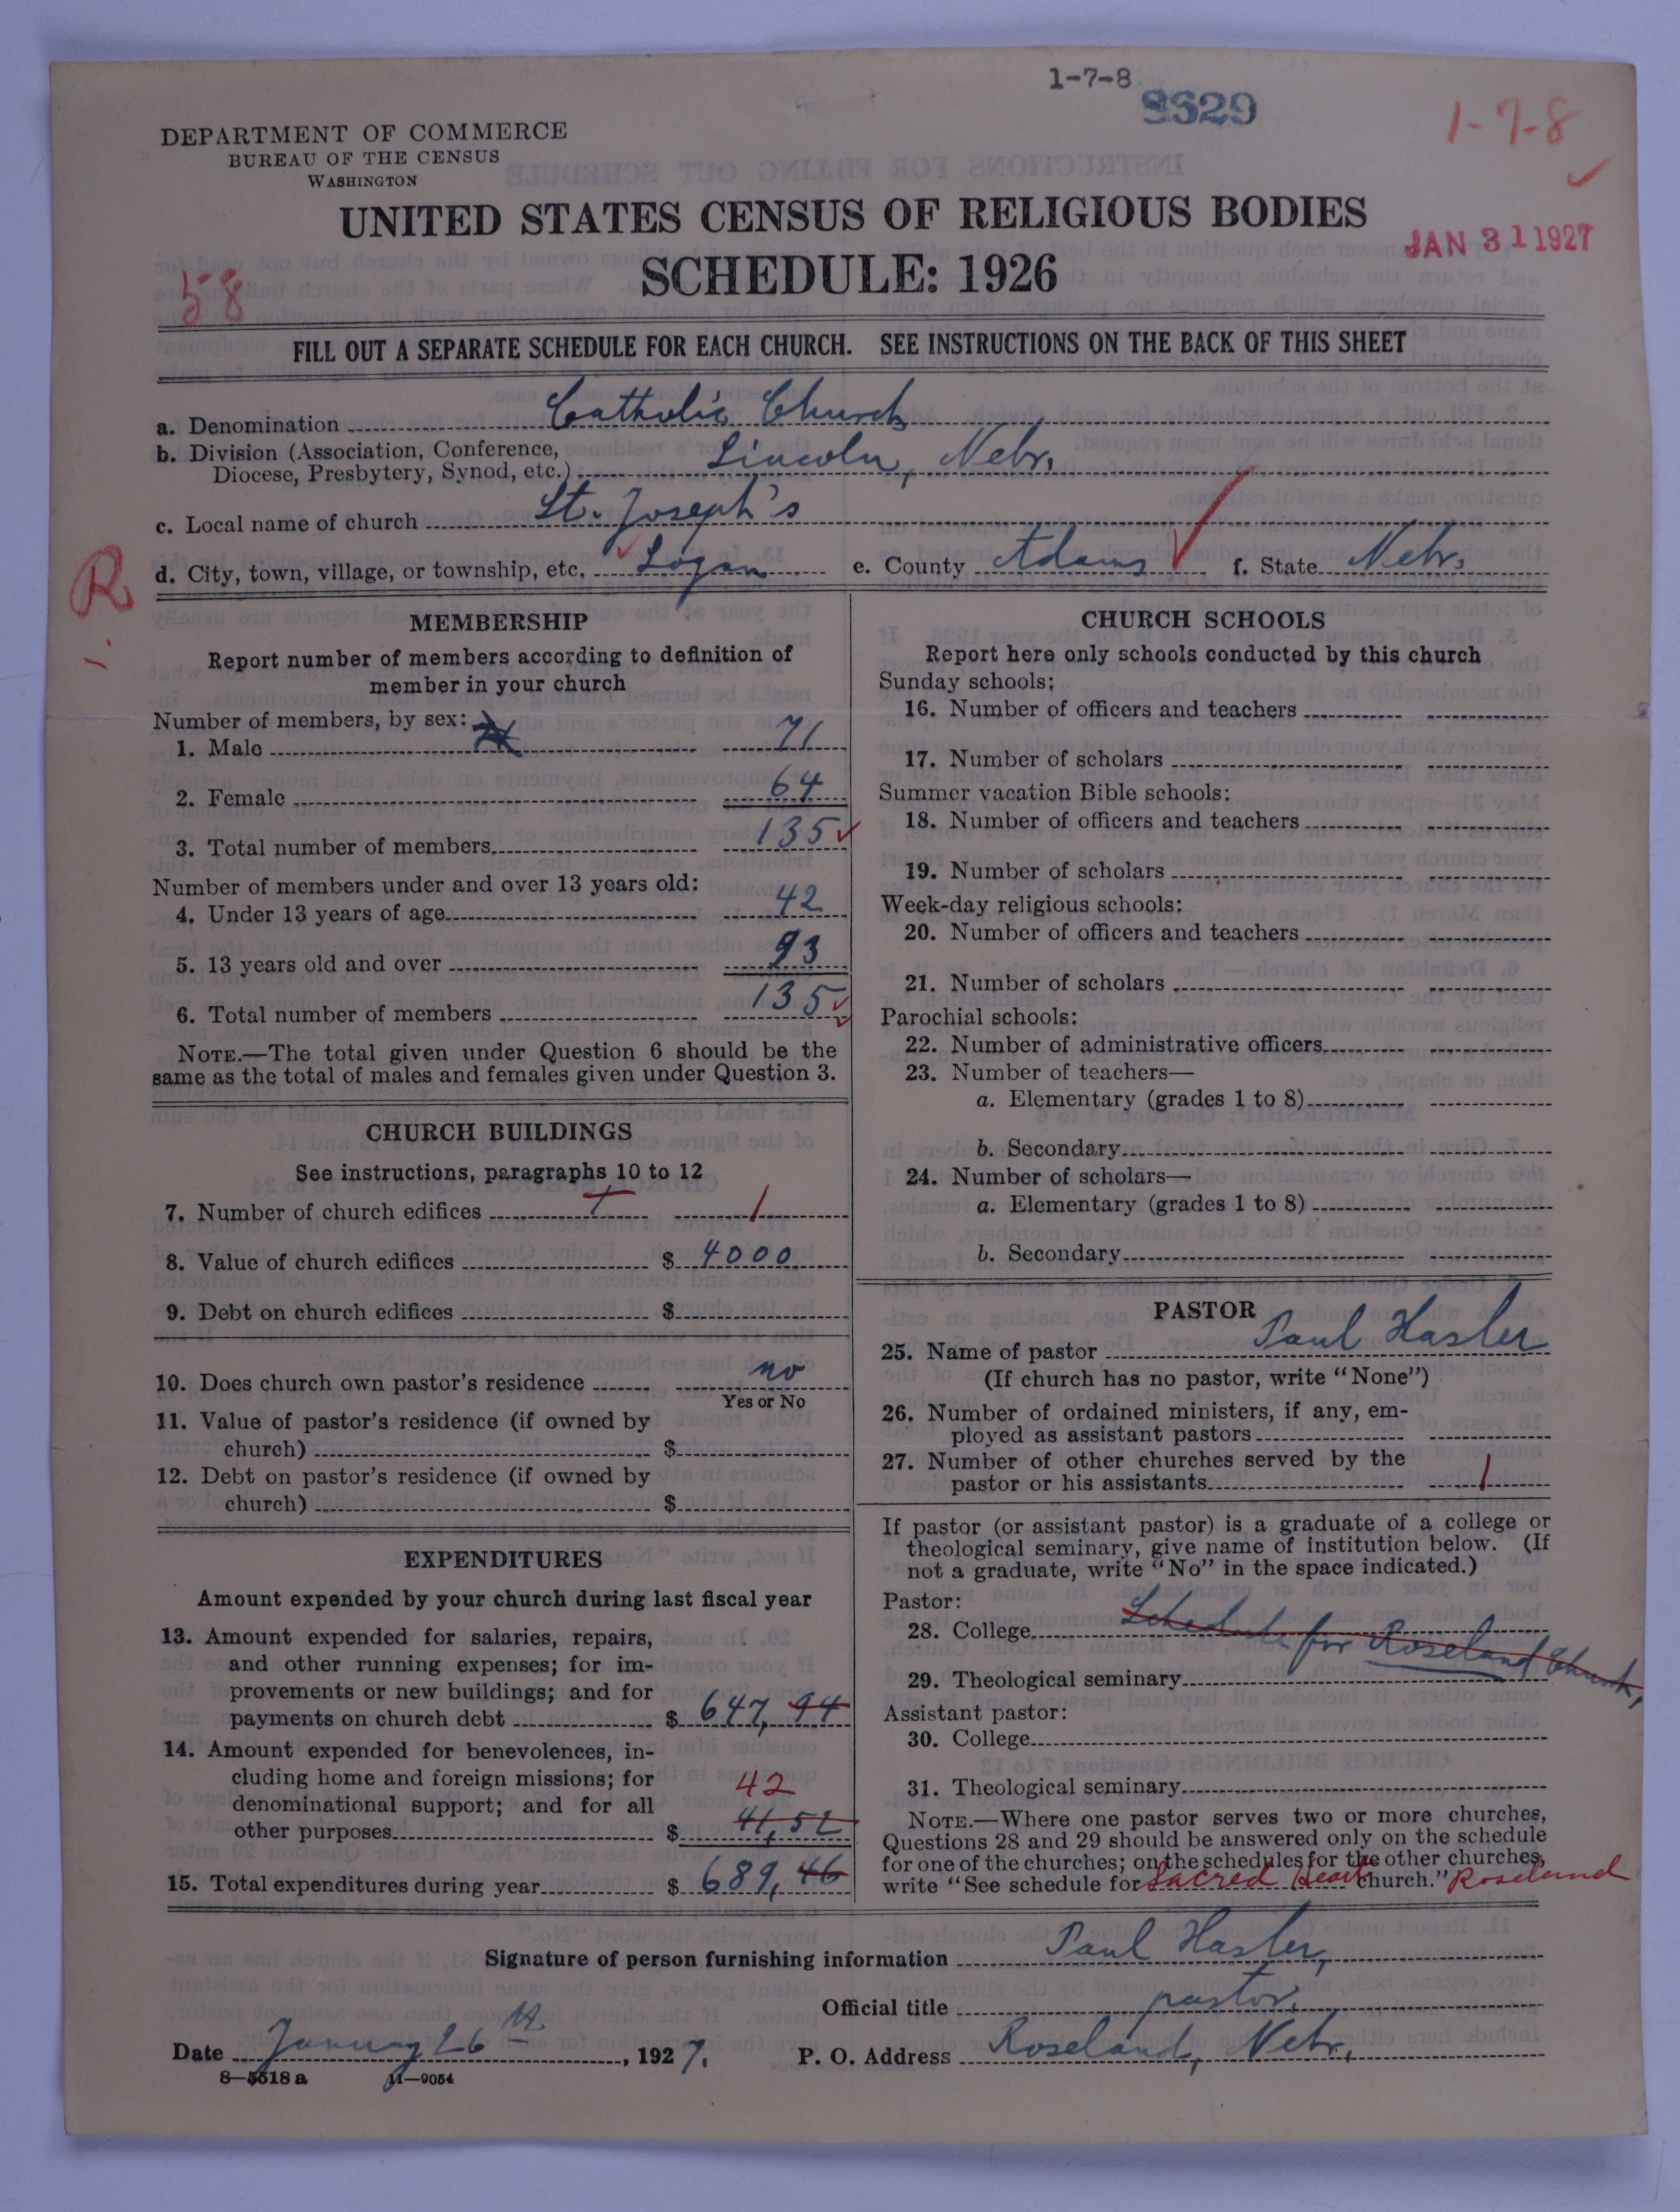 1-7-8
8629
1-7-8
DEPARTMENT OF COMMERCE
BUREAU OF THE CENSUS
WASHINGTON
UNITED STATES CENSUS OF RELIGIOUS BODIES
JAN 31 1927
SCHEDULE: 1926
58
FILL OUT A SEPARATE SCHEDULE FOR EACH CHURCH. SEE INSTRUCTIONS ON THE BACK OF THIS SHEET
a. Denomination Catholic Church
b. Division (Association, Conference,
Diocese, Presbytery, Synod, etc.) Lincoln, Nebr.
c. Local name of church St. Joseph's
d. City, town, village, or township, etc. Logan e. County Adams f. State Nebr.
R
MEMBERSHIP
Report number of members according to definition of
member in your church
Number of members, by sex:
1. Male 71
2. Female 64
3. Total number of members 135
Number of members under and over 13 years old:
4. Under 13 years of age 42
5. 13 years old and over 93
6. Total number of members 135
NOTE.—The total given under Question 6 should be the
same as the total of males and females given under Question 3.
CHURCH BUILDINGS
See instructions, paragraphs 10 to 12
7. Number of church edifices 1 1
8. Value of church edifices $ 4000
9. Debt on church edifices $
10. Does church own pastor's residence no
Yes or No
11. Value of pastor's residence (if owned by
church) $
12. Debt on pastor's residence (if owned by
church) $
EXPENDITURES
Amount expended by your church during last fiscal year
13. Amount expended for salaries, repairs,
and other running expenses; for im-
provements or new buildings; and for
payments on church debt $ 647,94
14. Amount expended for benevolences, in-
cluding home and foreign missions; for
denominational support; and for all 42
other purposes $ 41,52
15. Total expenditures during year $ 689,46
CHURCH SCHOOLS
Report here only schools conducted by this church
Sunday schools:
16. Number of officers and teachers
17. Number of scholars
Summer vacation Bible schools:
18. Number of officers and teachers
19. Number of scholars
Week-day religious schools:
20. Number of officers and teachers
21. Number of scholars
Parochial schools:
22. Number of administrative officers
23. Number of teachers—
a. Elementary (grades 1 to 8)
b. Secondary
24. Number of scholars—
a. Elementary (grades 1 to 8)
b. Secondary
PASTOR
25. Name of pastor Paul Hasler
(If church has no pastor, write "None")
26. Number of ordained ministers, if any, em-
ployed as assistant pastors
27. Number of other churches served by the
pastor or his assistants 1
If pastor (or assistant pastor) is a graduate of a college or
theological seminary, give name of institution below. (If
not a graduate, write "No" in the space indicated.)
Pastor:
28. College Schedule for Roseland Church,
29. Theological seminary
Assistant pastor:
30. College
31. Theological seminary
NOTE.—Where one pastor serves two or more churches,
Questions 28 and 29 should be answered only on the schedule
for one of the churches; on the schedules for the other churches,
write "See schedule for Sacred Heart church." Roseland
Signature of person furnishing information Paul Hasler,
Official title pastor.
Date January 26th, 1927. P. O. Address Roseland, Nebr.
8—5518 a 11—9054